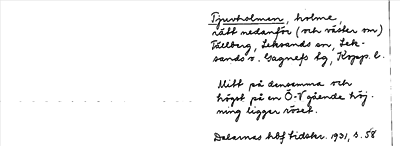 Tjuvholmen, holme,
rätt nedanför (och väster om)
Tällberg, Leksands sn, Lek-
sands o. Gagnefs tg, Kopp. l.
Mitt på densamma och
högst på en Ö-V gående höj-
ning ligger röset.
Dalarnas hbf tidskr. 1931, s. 58